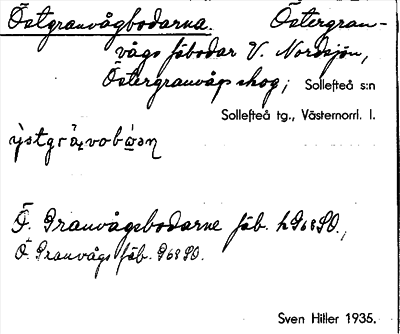 Östgranvågbodarna. Östergran-
vågs fäbodar V. Nordsjön,
Östergranvåg skog; Sollefteå s:n
Sollefteå tg., Västernorrl. l.
Ö. Granvågsbodarne fäb. h G68SO.,
Ö Granvågs fäb. G68SO.
Sven Hitler 1935.